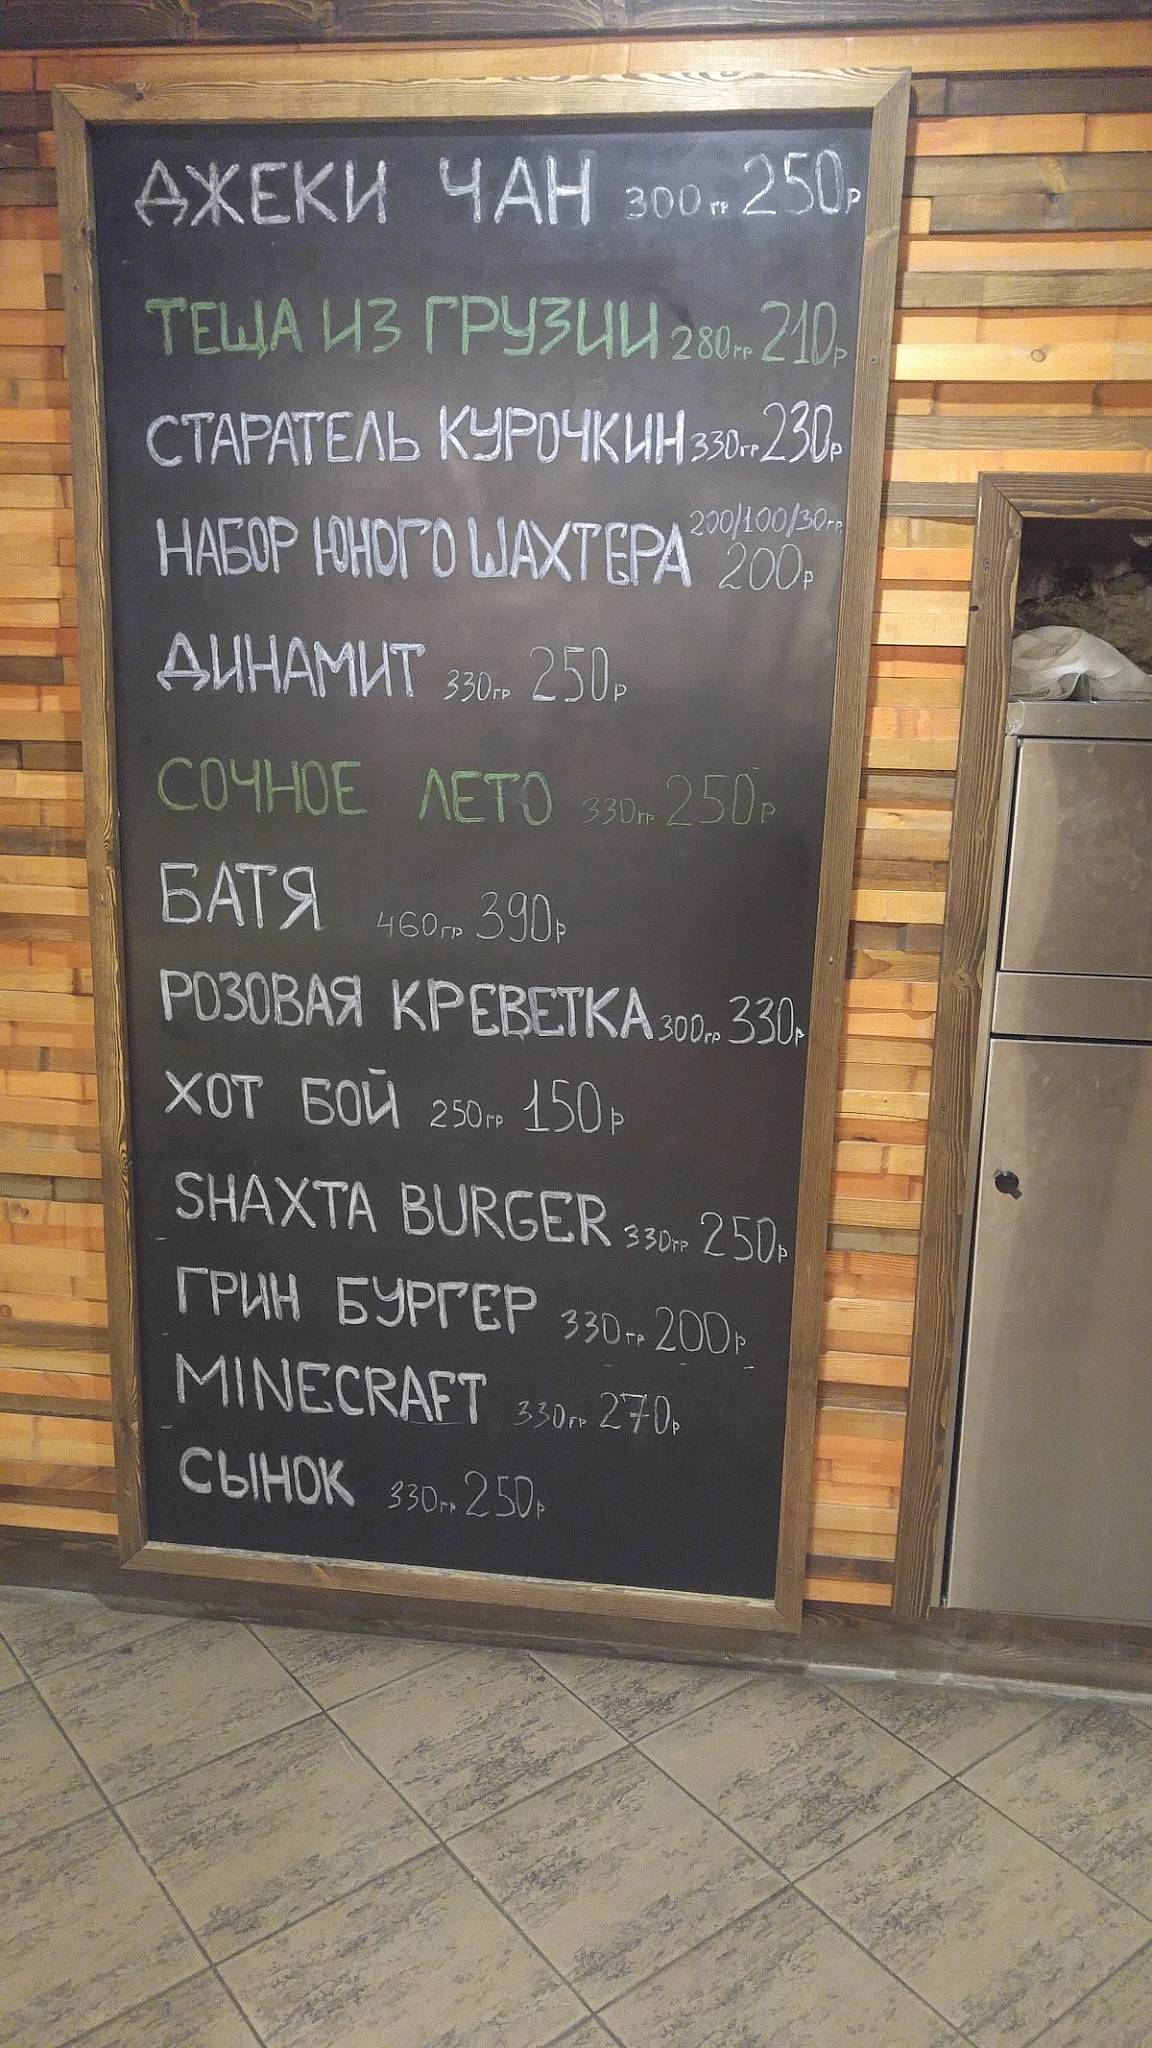 ДЖЕКИ ЧАН 300гр 250р
ТЕЩА ИЗ ГРУЗИИ 280гр 210р
СТАРАТЕЛЬ КУРОЧКИН 330гр 230р
НАБОР ЮНОГО ШАХТЕРА 200/100/30гр 200р
ДИНАМИТ 330гр 250р
СОЧНОЕ ЛЕТО 330гр 250р
БАТЯ 460гр 390р
РОЗОВАЯ КРЕВЕТКА 300гр 330р
ХОТ БОЙ 250гр 150р
SHAXTA BURGER 330гр 250р
ГРИН БУРГЕР 330гр 200р
MINECRAFT 330гр 270р
СЫНОК 330гр 250р